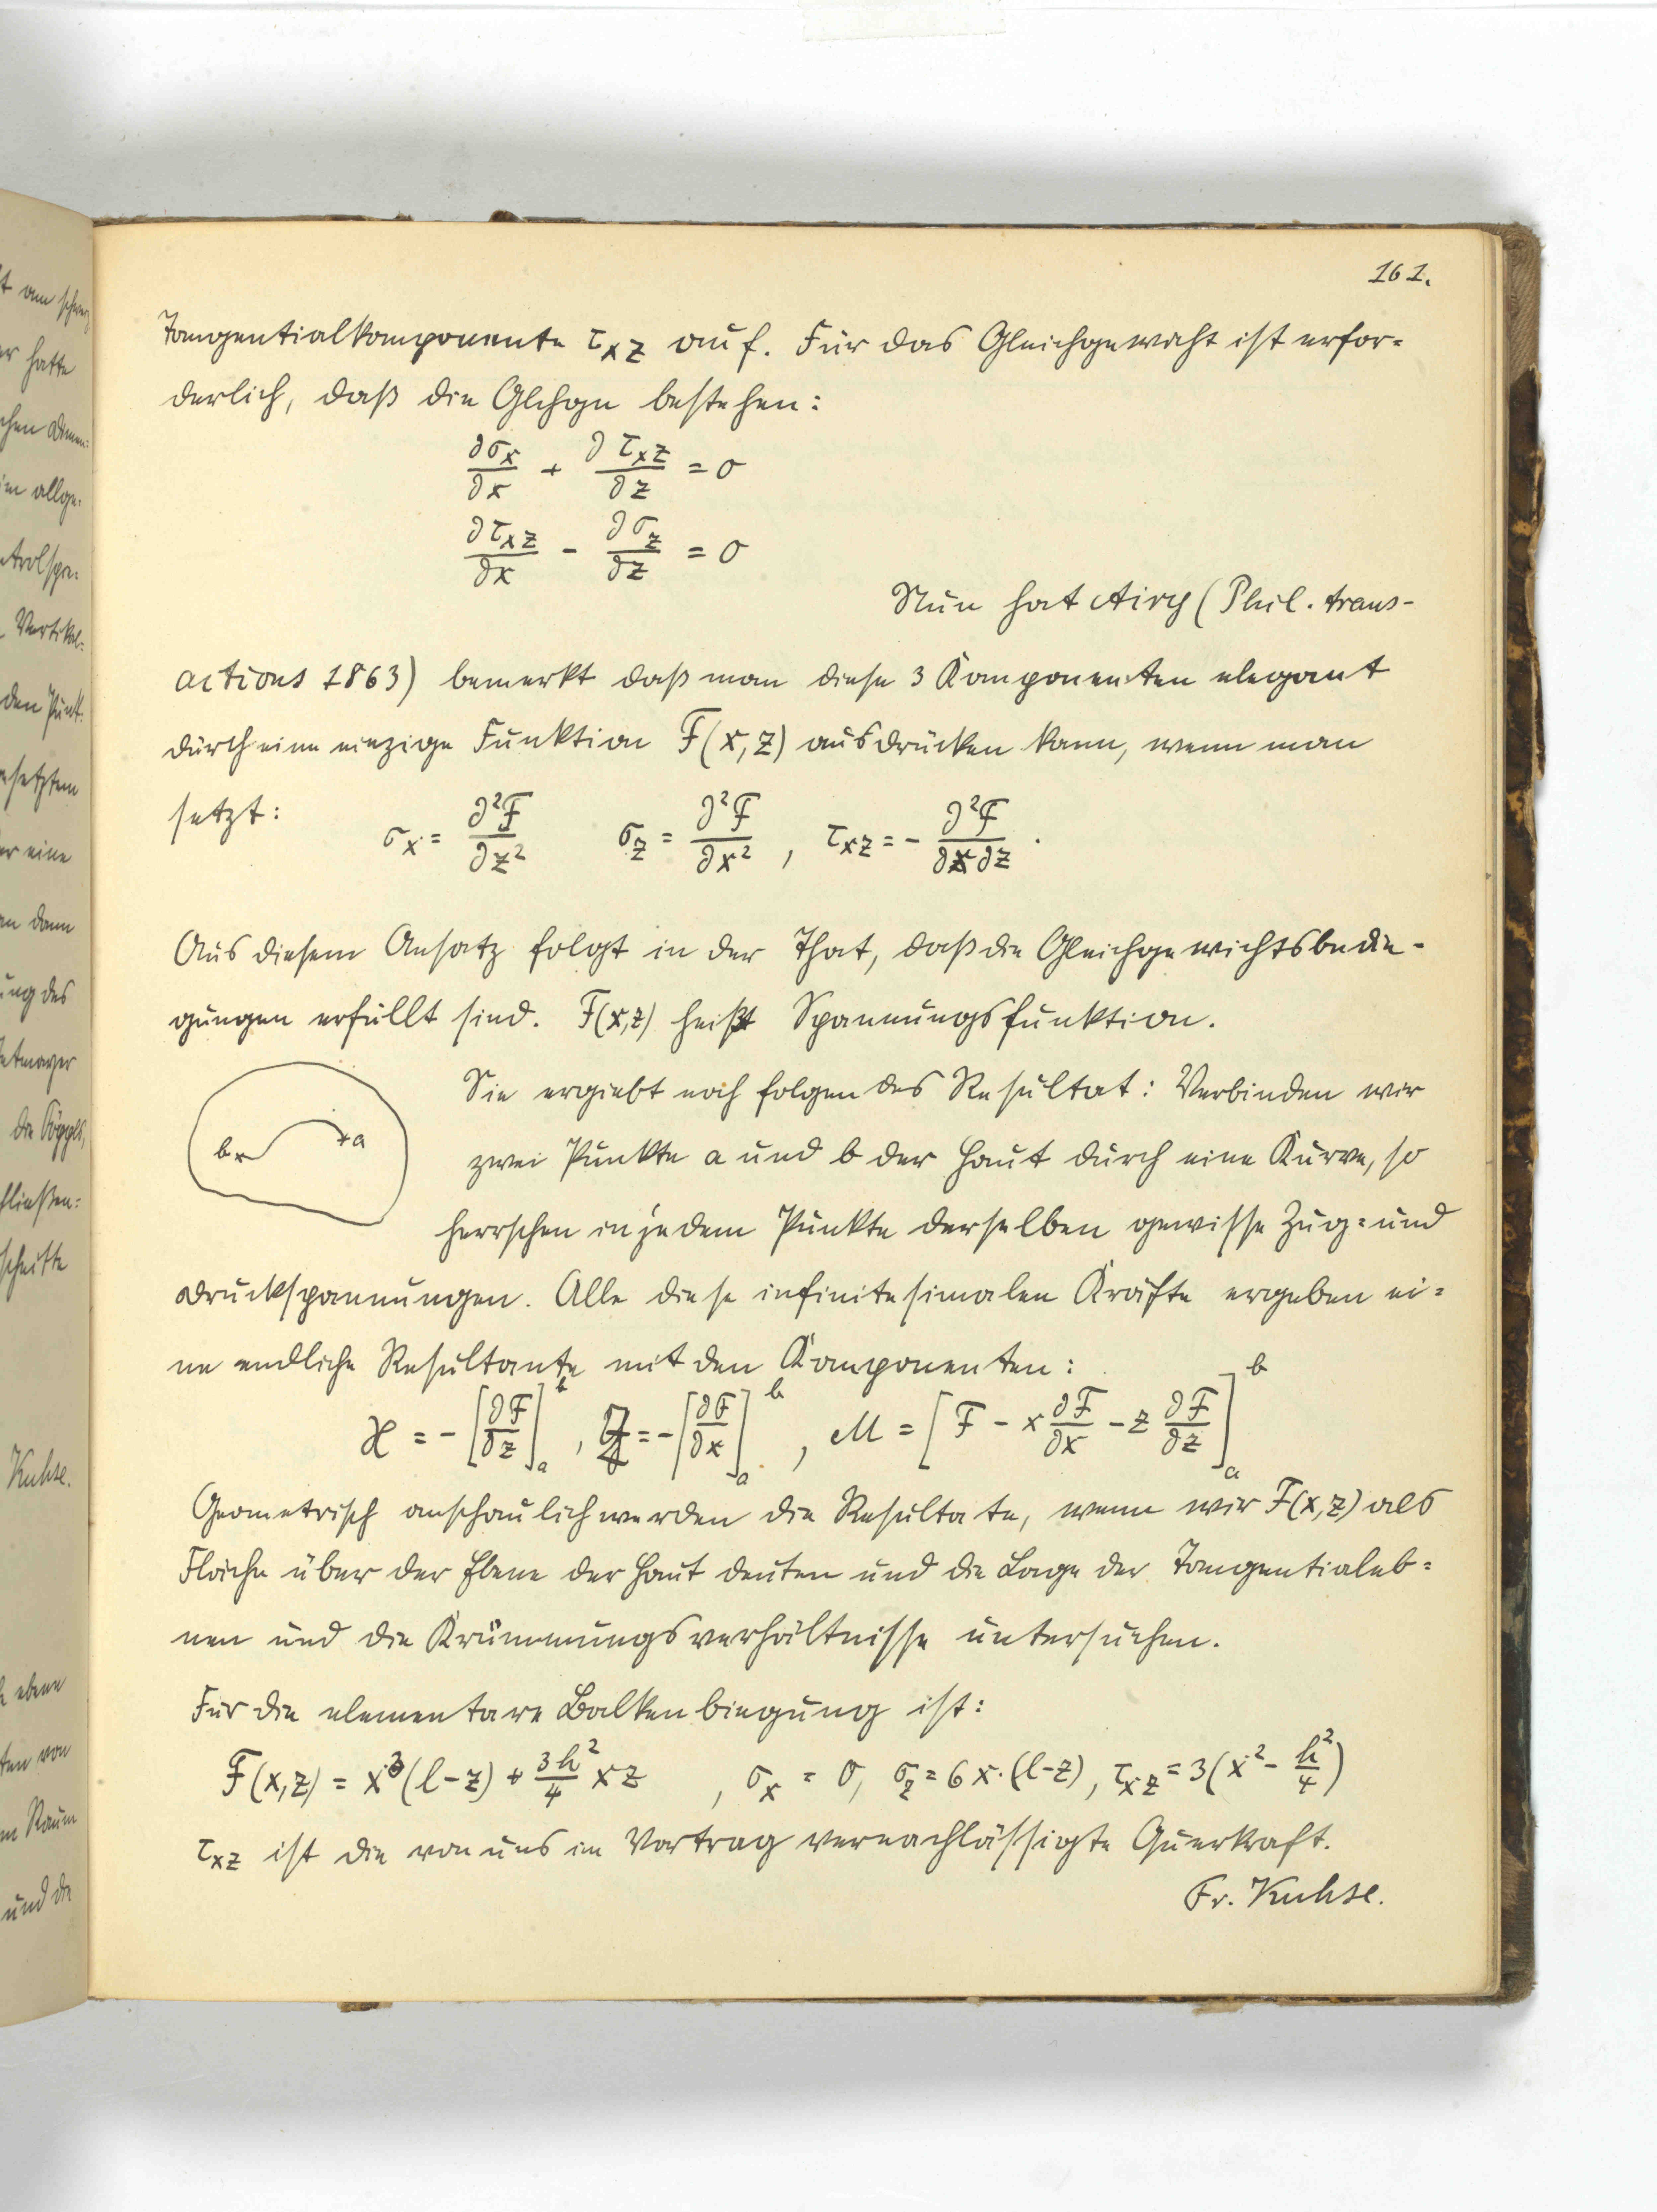 161.
Tangentialkomponente τxz auf. Für das Gleichgewicht ist erfor-
derlich, daß die Glchgn bestehen:
∂σx/∂x + ∂τxz/∂z = 0
∂τxz/∂x - ∂σz/∂z = 0
Nun hat Airy (Phil. trans-
actions 1863) bemerkt daß man diese 3 Komponenten elegant
durch eine einzige Funktion F(x,z) ausdrücken kann, wenn man
setzt: σx = ∂²F/∂z² σz = ∂²F/∂x² , τxz = - ∂²F/∂x∂z .
Aus diesem Ansatz folgt in der That, daß die Gleichgewichtsbedin-
gungen erfüllt sind. F(x,z) heißt Spannungsfunktion.
Sie ergiebt noch folgendes Resultat: Verbinden wir
b a
zwei Punkte a und b der Haut durch eine Kurve, so
herrschen in jedem Punkte derselben gewisse Zug= und
Druckspannungen. Alle diese infinitesimalen Kräfte ergeben ei=
ne endliche Resultante mit den Komponenten:
X = - [∂F/∂z]ₐᵇ , Z = - [∂F/∂x]ₐᵇ , M = [F - x ∂F/∂x - z ∂F/∂z]ₐᵇ
Geometrisch anschaulich werden die Resultate, wenn wir F(x,z) als
Fläche über der Ebene der Haut deuten und die Lage der Tangentialeb=
nen und die Krümmungsverhältnisse untersuchen.
Für die elementare Balkenbiegung ist:
F(x,z) = x³(l-z) + 3h²/4 xz , σx = 0, σz = 6x·(l-z), τxz = 3(x² - h²/4)
τxz ist die von uns im Vortrag vernachlässigte Querkraft.
Fr. Kuhse.
hatte
eine
dann
ung des
Kuhse.
ebene
Raum
und die